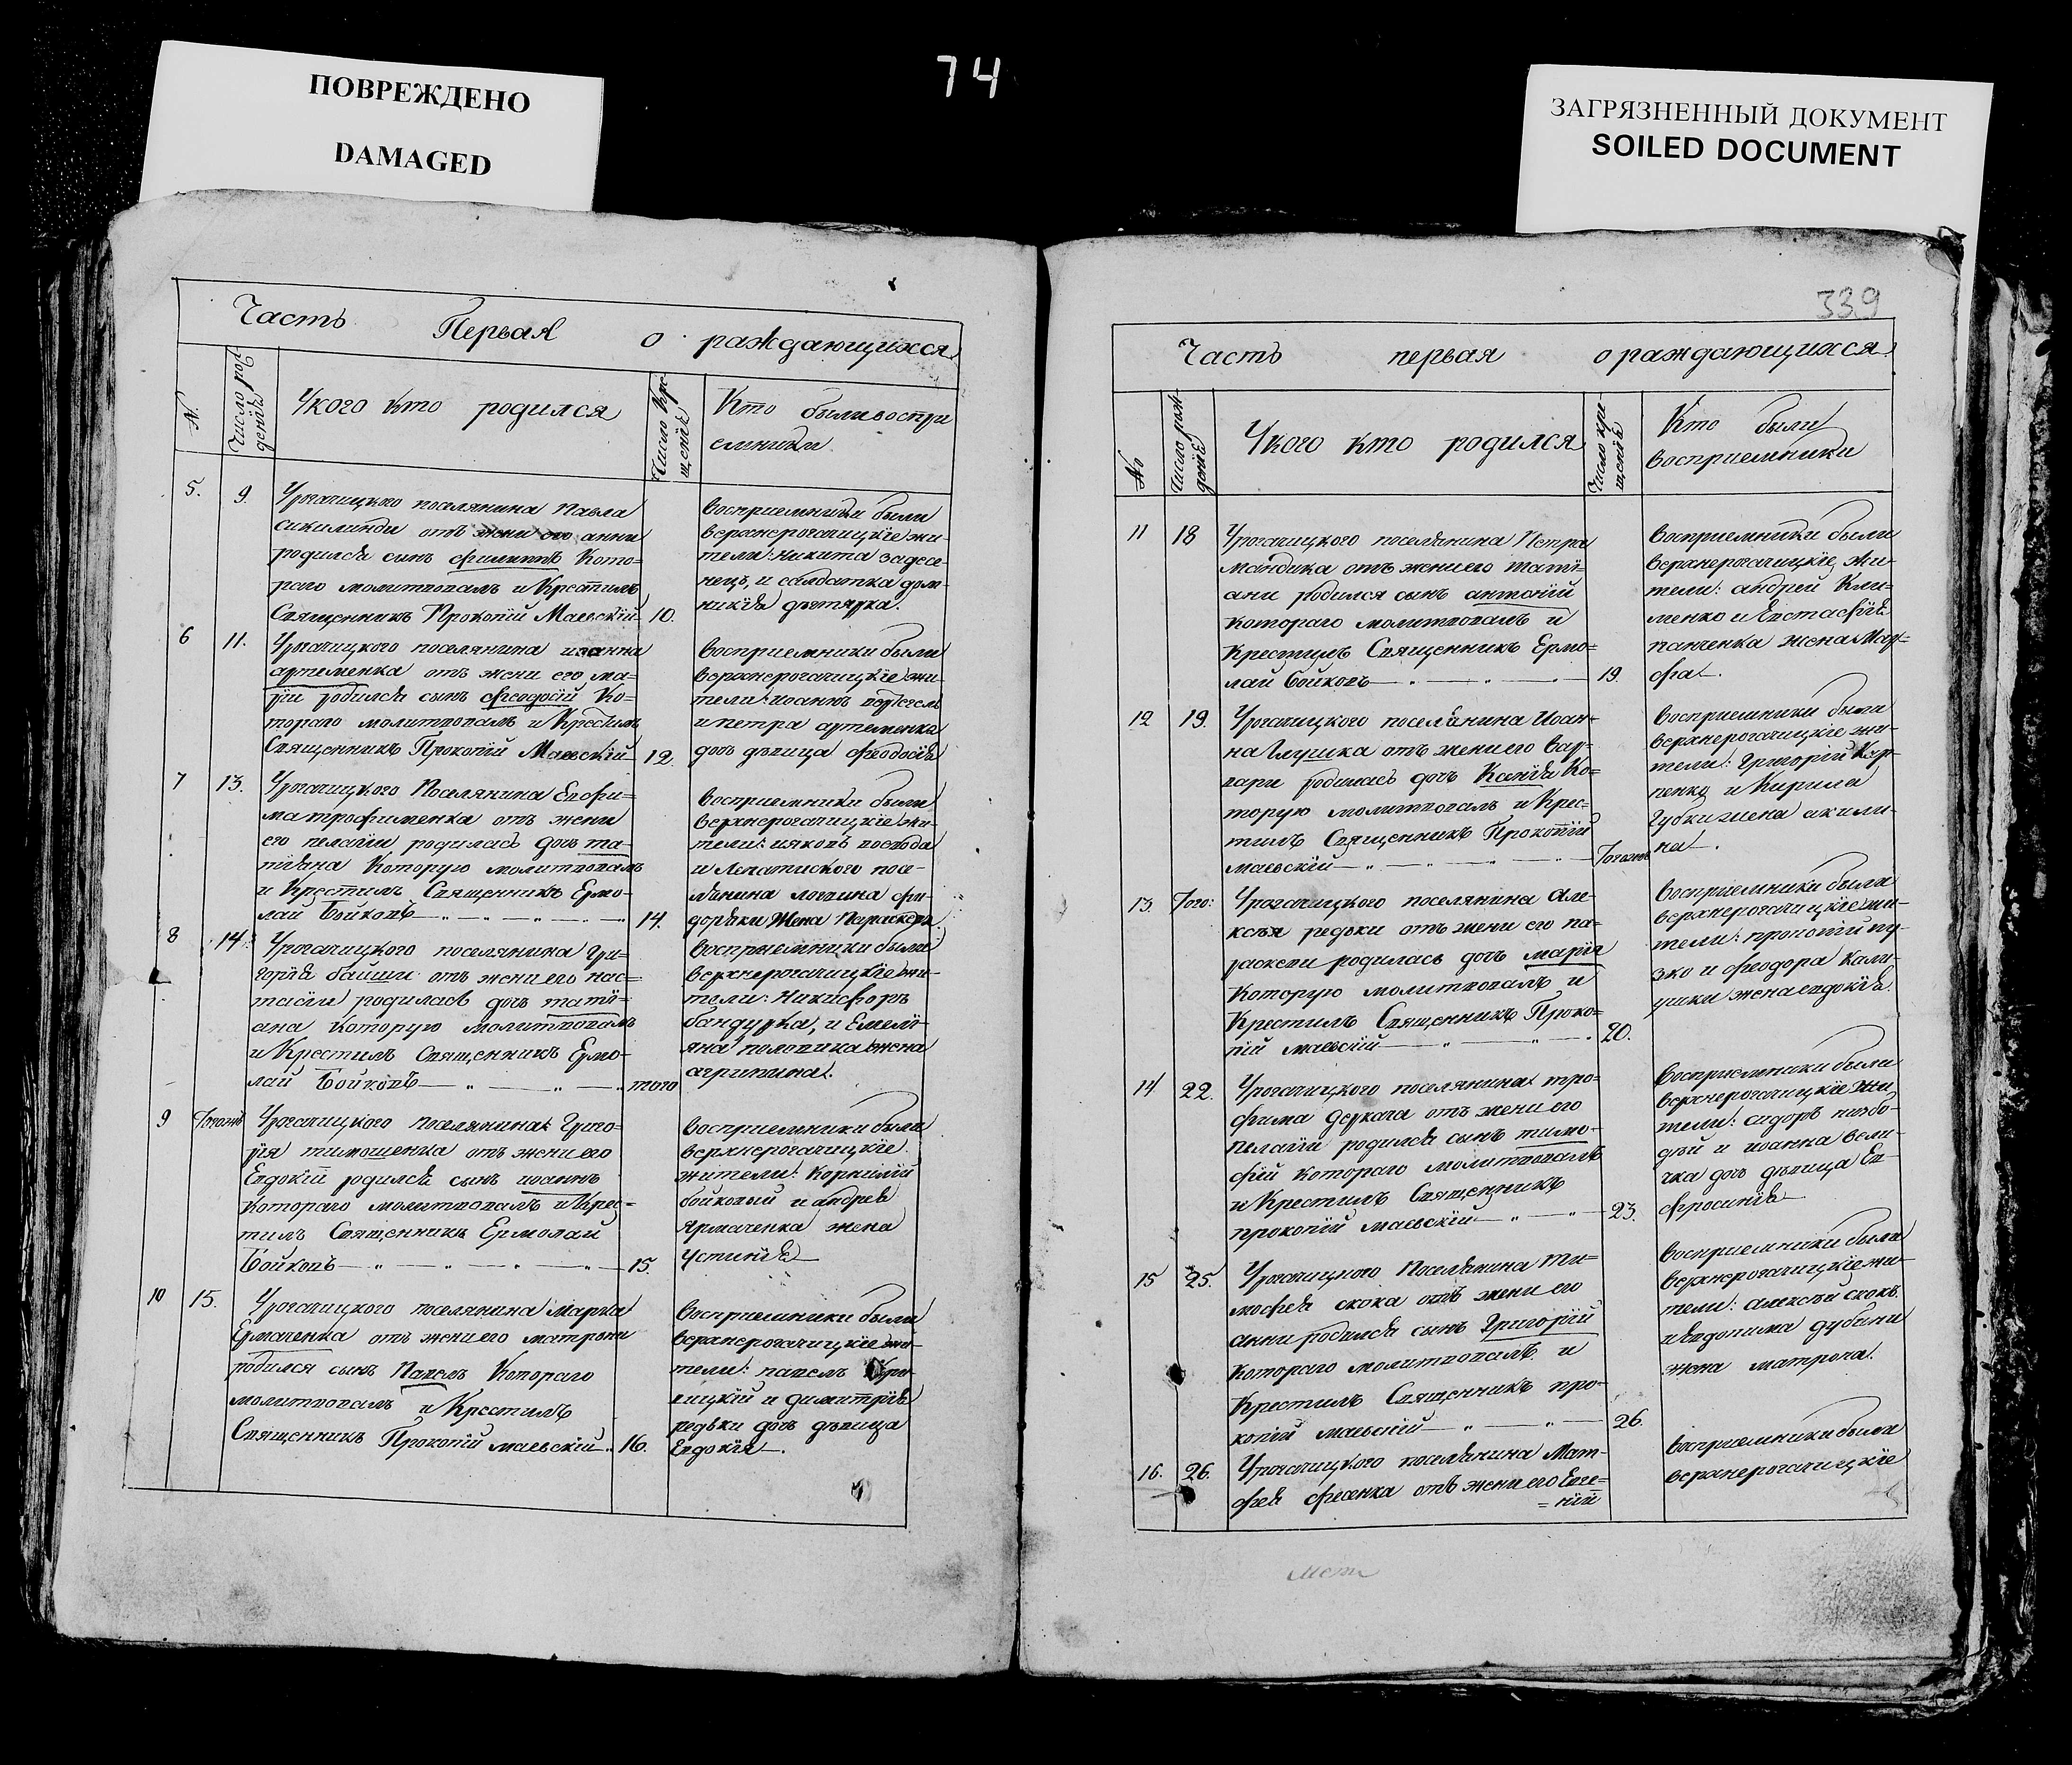 74
ПОВРЕЖДЕНО
DAMAGED
ЗАГРЯЗНЕННЫЙ ДОКУМЕНТ
SOILED DOCUMENT
Часть Первая о раждающихся
№.
Число рож-
деніѣ
Укого кто родился
Число Кре-
щеніѣ
Кто были воспри
емники
5. 9.
Урогачицкого поселянина Павла
отъ жени его анни
родилсѣ сынъ филиппъ Кото-
раго молитвовалъ и Крестилъ
Священникъ Прокопій Маевскій 10.
восприемники были
верхнерогачицкіе жи-
тели: никита задесе-
нецъ, и салдатка дом-
никіѣ
6 11.
Урогачицкого поселянина иоанна
артеменка отъ жени его ма-
ріи родилсѣ сынъ феодосій Ко-
тораго молитвовалъ и Крестилъ
Священникъ Прокопій Маевскій 12.
восприемники были
верхнерогачицкіе жи-
тели: иоаннъ
и петра артеменка
дочь дѣвица феодосіѣ
7 13.
Урогачицкого Поселянина Евфи-
ма трофименка отъ жени
его пелагіи родилась дочь та-
тіѣна Которую молитвовалъ
и Крестилъ Священникъ Ермо-
лай Бойковъ 14.
восприемники были
верхнерогачицкіе жи-
тели: иаковъ
и Лепатиского посе-
лѣнина логвина фи-
жена Параскева.
8 14.
Урогачицкого поселянина Гри-
горіѣ отъ жени его нас-
тасіи родилась дочь татіѣ-
ана Которую молитвовалъ
и Крестилъ Священникъ Ермо-
лай Бойковъ того
восприемники были
верхнерогачицкіе жи-
тели: Никифоръ
бандурка, и Емелѣ-
яна половика жена
агрипина.
9 Тогожъ
Урогачицкого поселянина Григо-
рія тимошенка отъ жени его
Евдокіи родилсѣ сынъ иоаннъ
Котораго молитвовалъ и Крес-
тилъ Священникъ Ермолай
Бойковъ 15.
восприемники были
верхнерогачицкіе
жители: корнилій
бойковый и андрея
Ярмаченка жена
устиніѣ
10 15.
Урогачицкого поселянина Марка
Ермаченка отъ жени его матрони
родился сынъ Павелъ Котораго
молитвовалъ и Крестилъ
Священникъ Прокопій маевскій 16.
восприемники были
верхнерогачицкіе жи-
тели: павелъ
и димитріѣ
редьки дочь дѣвица
Евдокія.
339
Часть первая о раждающихся
№
Число рож-
деніѣ
Укого кто родился
Число кре-
щеніѣ
Кто были
восприемники
11 18
Урогачицкого поселѣнина Петра
мандика отъ жени его татѣ-
ани родился сынъ антоній
котораго молитвовалъ и
Крестилъ Священникъ Ермо-
лай Бойковъ 19.
восприемники были
верхнерогачицкіе жи-
тели: андрей Кли-
менко и Евстафіѣ
панченка жена Мар-
фа.
12 19.
Урогачицкого поселѣнина Иоан-
на Глушка отъ жени его вар-
вари родилась дочь Ксеніѣ Ко-
торую молитвовалъ и Крес-
тилъ Священникъ Прокопій
маевскій Тогожъ
восприемники были
верхнерогачицкіе жи-
тели: Григорій Кар-
пенко и Кирила
Губки жена акили-
на.
13. Того:
Урогачицкого поселянина Але-
ксѣя редьки отъ жени его па-
раскеви родилась дочь марія
Которую молитвовалъ и
Крестилъ Священникъ Проко-
пій маевскій 20.
восприемники были
верхнерогачицкіе жи-
тели: прокопій пу-
зко и феодора Кали-
ушки жена евдокіѣ.
14 22.
Урогачицкого поселянина тро-
фима деркача отъ жени его
пелагіи родилсѣ сынъ тимо-
фій котораго молитвовалъ
и Крестилъ Священникъ
прокопій маевскій 23.
восприемники были
верхнерогачицкіе жи
тели: сидоръ
и иоанна вели-
чка дочь дѣвица Ев-
фросиніѣ
15 25.
Урогачицкого Поселѣнина Ти-
мофеѣ скока отъ жени его
анни родилсѣ сынъ Григорій
которого молитвовалъ и
Крестилъ Священникъ про-
копій маевскій 26.
восприемники были
верхнерогачицкіе жи-
тели: алексѣй скокъ.
и евдокима дубини
жена матрона.
16. 26.
Урогачицкого поселѣнина Мат-
феѣ фесенка отъ жени его Евге-
=ніи
восприемники были
верхнерогачицкіе